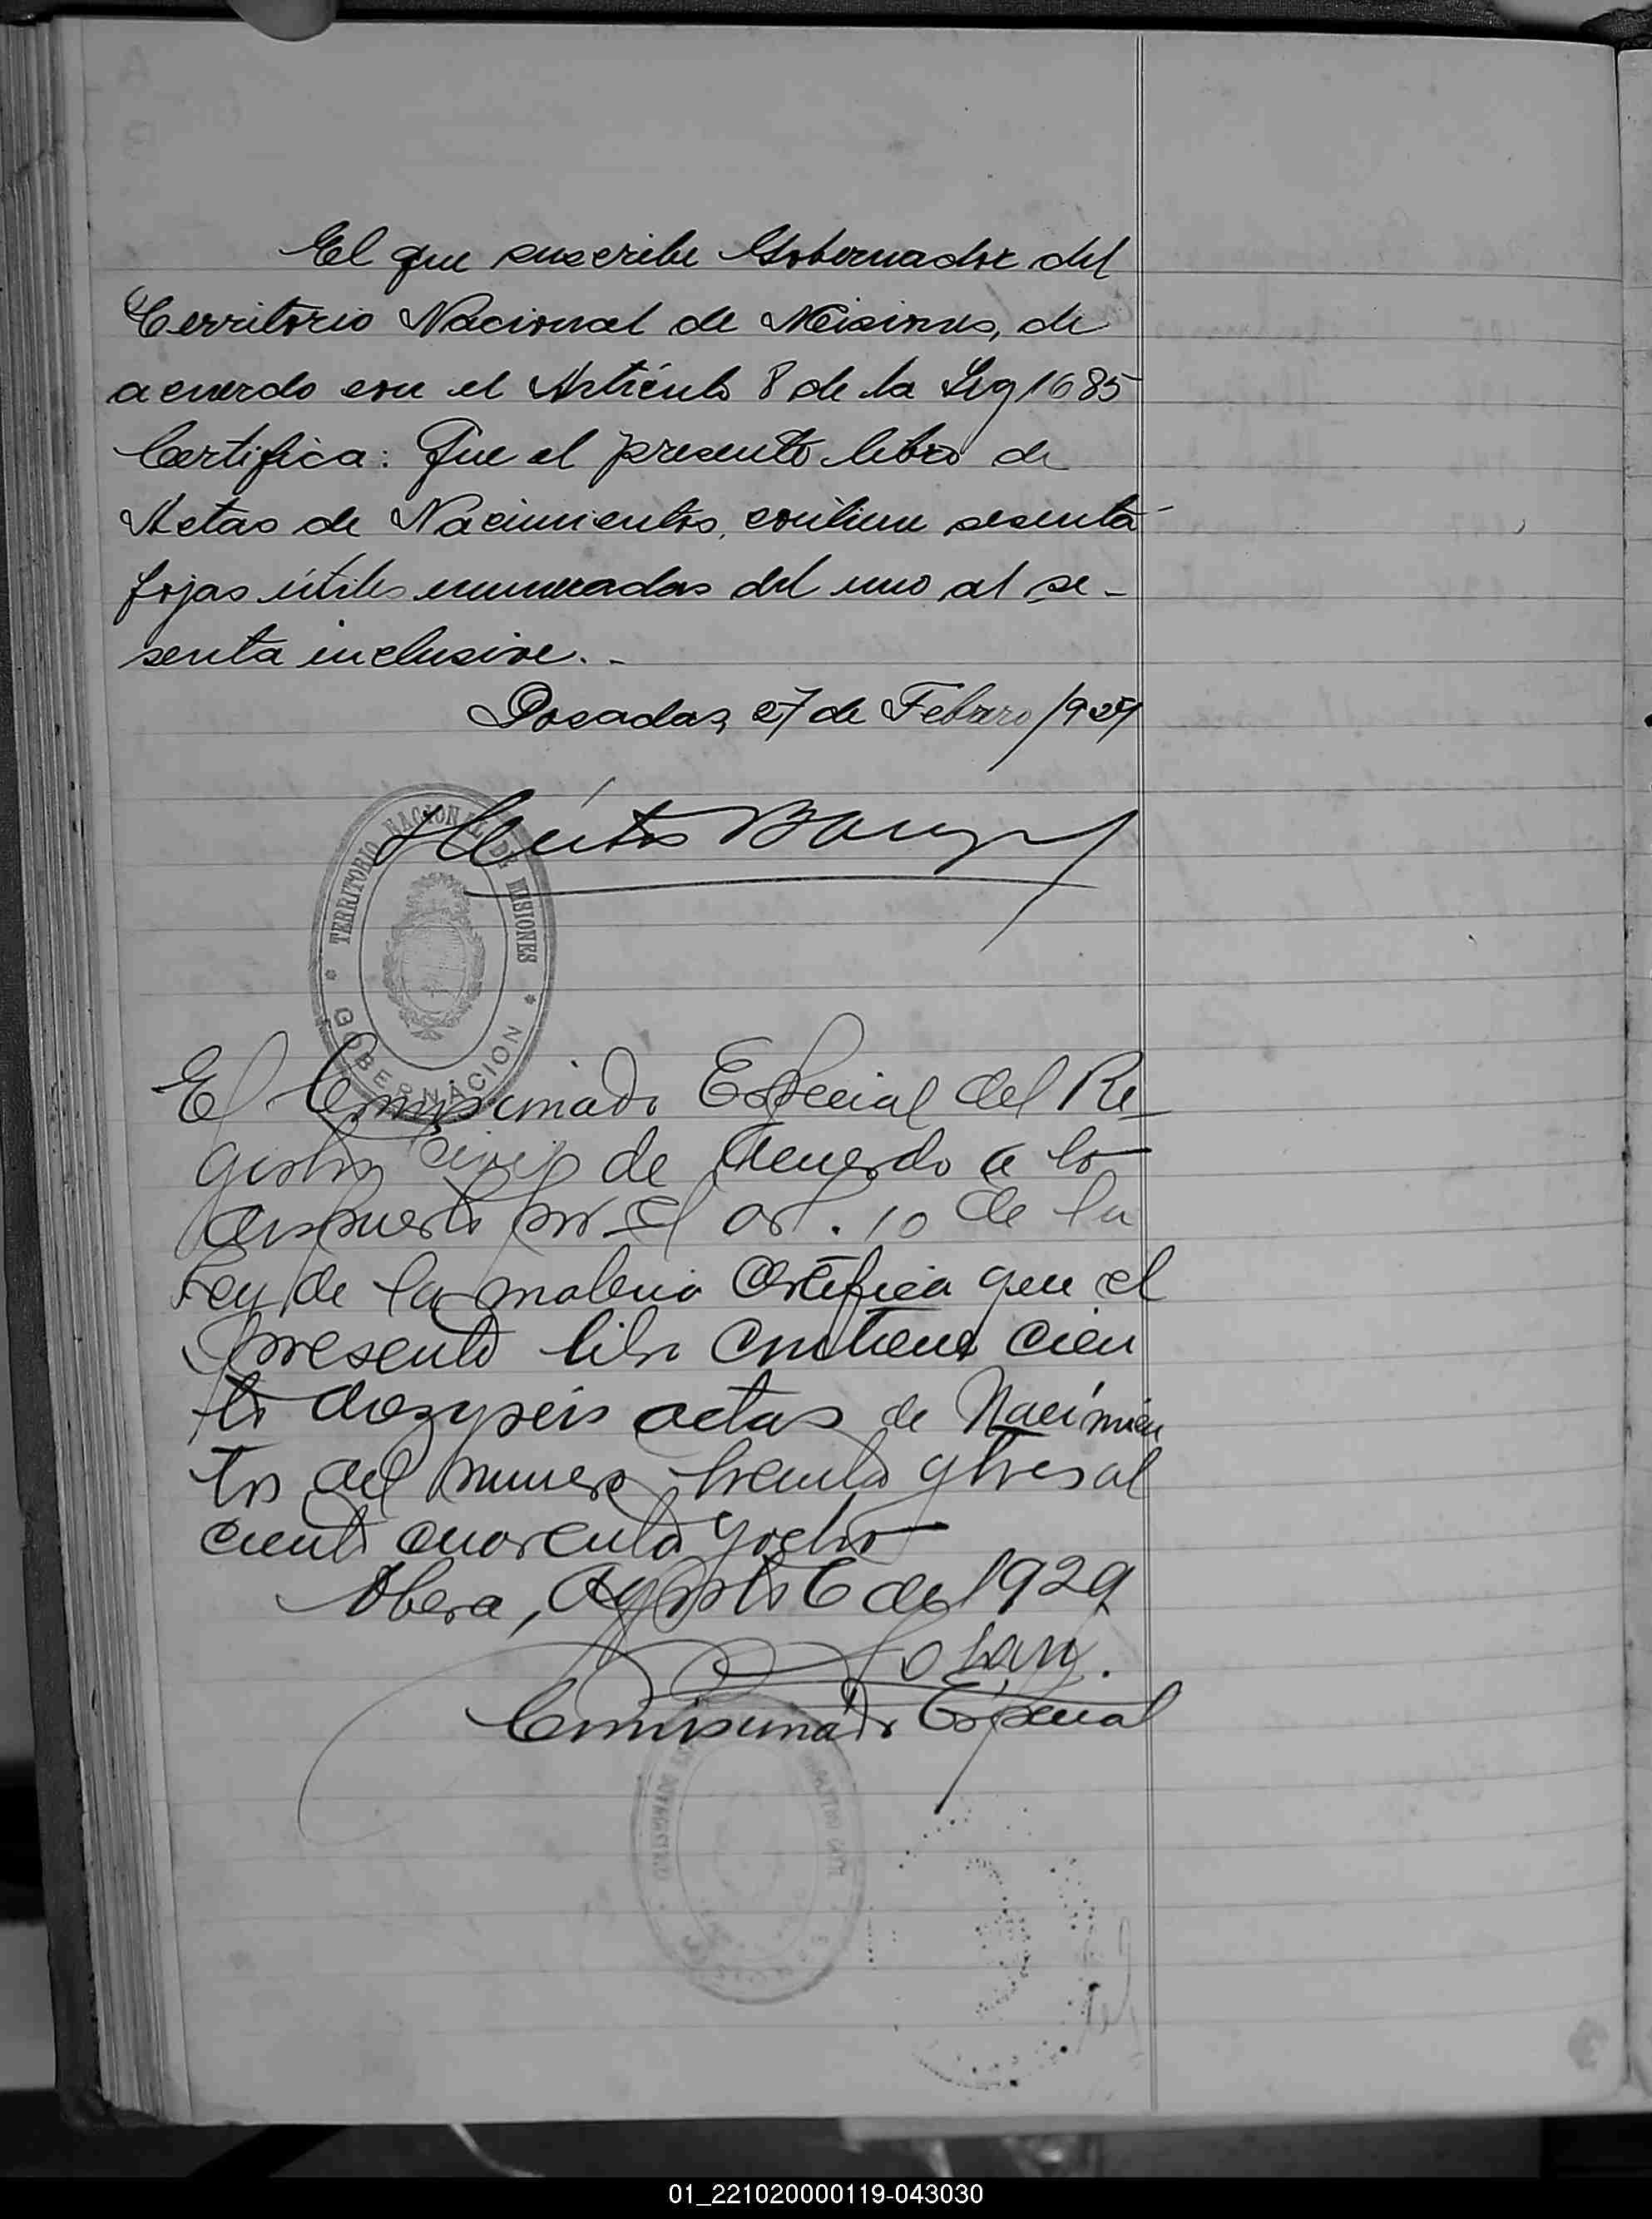 El que suscribe Gobernador del
Territorio Nacional de Misiones, de
acuerdo con el Artículo 8 de la Ley 1685
Certifica: Que el presente libro de
Actas de Nacimientos, contiene sesenta
fojas útiles enumeradas del uno al se-
senta inclusive.-
Posadas, 27 de Febrero 1929
TERRITORIO NACIONAL DE MISIONES
GOBERNACION
El Comisionado Especial del Re-
gistro Civil de Acuerdo a lo
dispuesto por el art. 10 de la
Ley de la materia Certifica que el
presente libro contiene cien
to diezyseis actas de Nacimien
tos del numero treinta y tres al
ciento cuarenta y ocho
Obera, Agosto 6 de 1929
Comisionado Especial
01_221020000119-043030